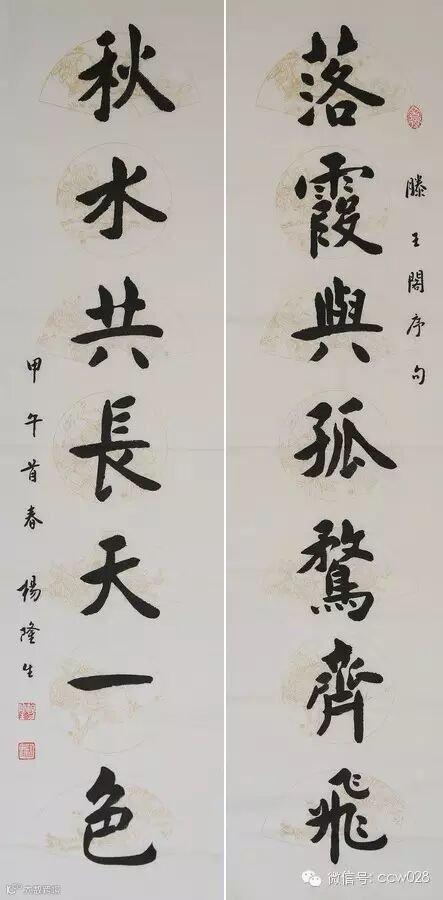 滕王閣序句
落霞與孤鶩齊飛
秋水共長天一色
甲午首春 楊隆生
微信号: ccw028